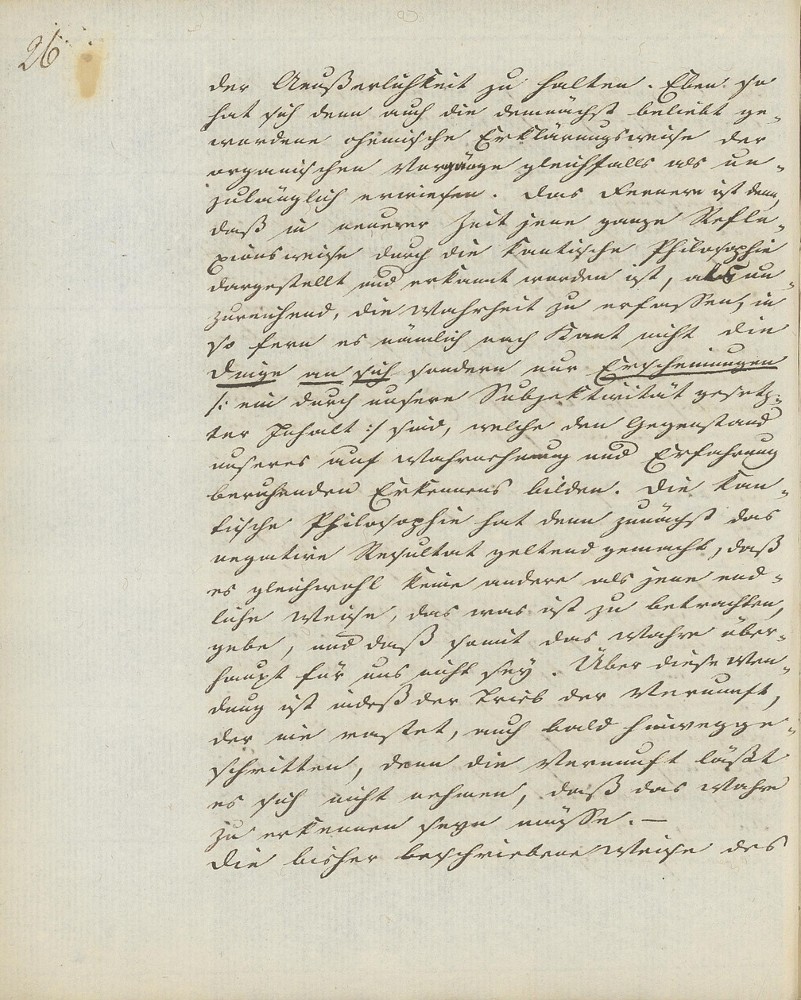 26.
der Aeußerlichkeit zu halten. Eben so
hat sich denn auch die demnächst beliebt ge-
wordene chemische Erklärungsweise der
organischen Vorgänge gleichfalls als un-
zulänglich erwiesen. Das Fernere ist denn,
daß in neuerer Zeit jene ganze Refle-
xionsweise durch die kantische Philosophie
dargestellt und erkannt worden ist, als un-
zureichend, die Wahrheit zu erfassen, in
so fern es nämlich nach Kant nicht die
Dinge an sich sondern nur Erscheinungen
/: ein durch unsere Subjektivität gesetz-
ter Inhalt :/ sind, welche den Gegenstand
unseres auf Wahrnehmung und Erfahrung
beruhenden Erkennens bilden. Die Kan-
tische Philosophie hat denn zunächst das
negative Resultat geltend gemacht, daß
es gleichwohl keine andere als jene end-
liche Weise, das was ist zu betrachten,
gebe, und daß somit das Wahre über-
haupt für uns nicht sey. Über diese Wen-
dung ist indeß der Trieb der Vernunft,
der nie rastet, auch bald hinwegge-
schritten, denn die Vernunft läßt
es sich nicht nehmen, daß das Wahre
zu erkennen seyn müsse. —
Die bisher beschriebene Weise des